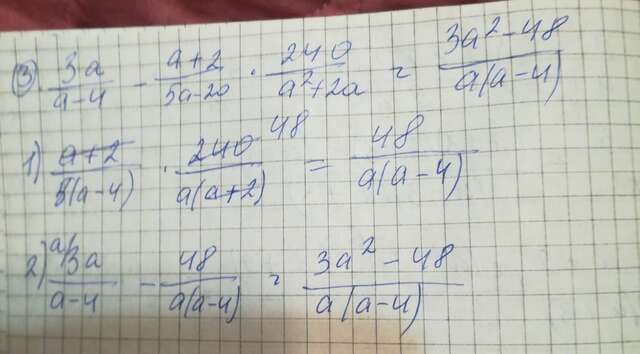 ③ 3a/(a-4) - (a+2)/(5a-20) · 240/(a²+2a) = (3a²-48)/(a(a-4))
1) (a+2)/(5(a-4)) · 240 48/(a(a+2)) = 48/(a(a-4))
2) a/ 3a/(a-4) - 48/(a(a-4)) = (3a²-48)/(a(a-4))